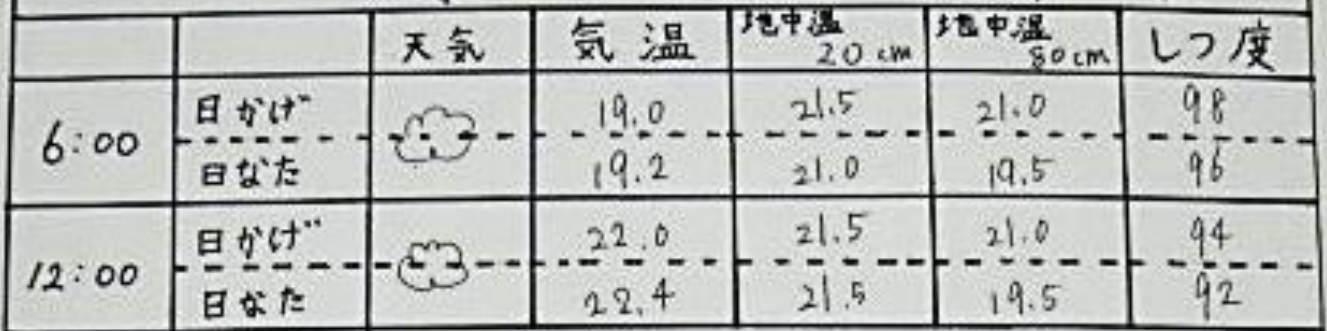 天気 気温 地中温 20cm 地中温 80cm しつ度
6:00 日かげ 19.0 21.5 21.0 98
日なた 19.2 21.0 19.5 96
12:00 日かげ 22.0 21.5 21.0 94
日なた 22.4 21.5 19.5 92